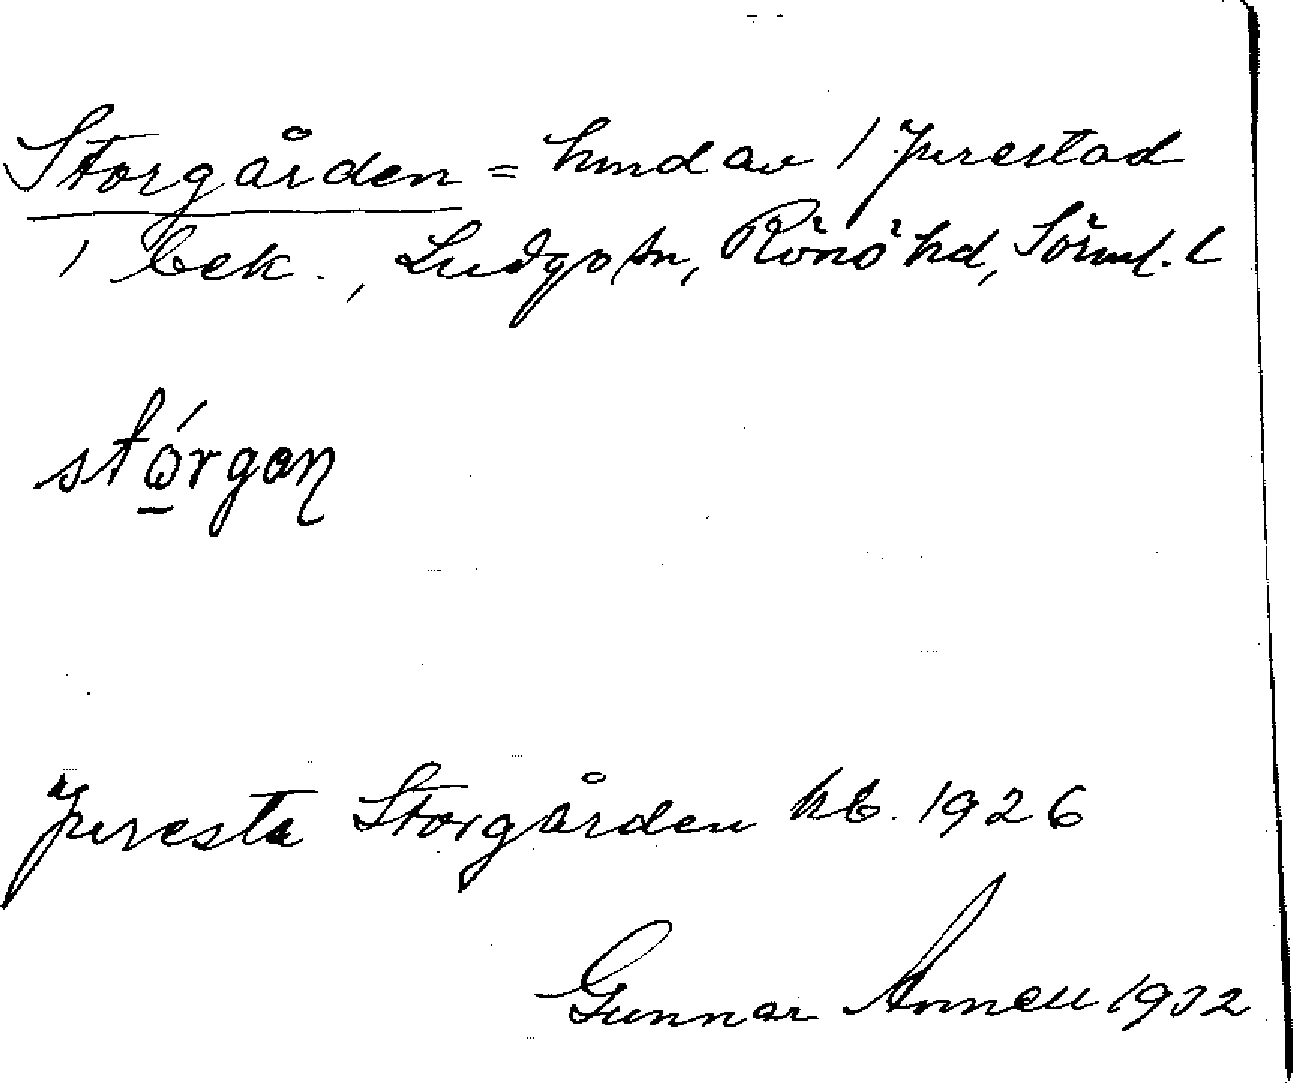 Storgården = hmd av 1 Jurestad
1 bek., Ludgo sn, Rönö hd, Sörml. l
stórgan
Juresta Storgården kb. 1926
Gunnar Annell 1932